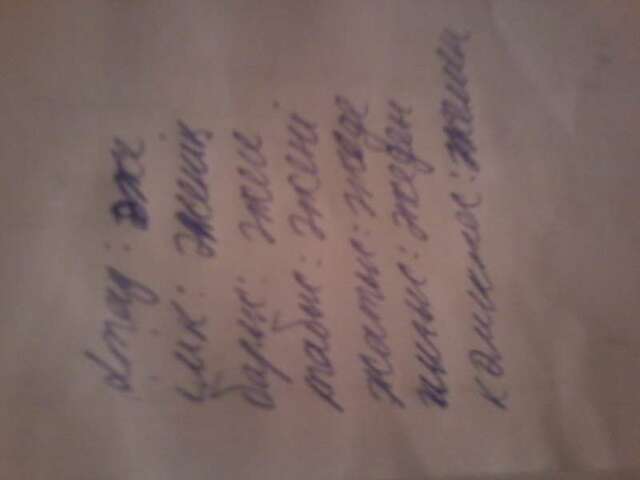 Атау: әже
ілік: әженің
барыс: әжеге
табыс: әжені
жатыс: әжеде
шығыс: әжеден
көмектес: әжемен